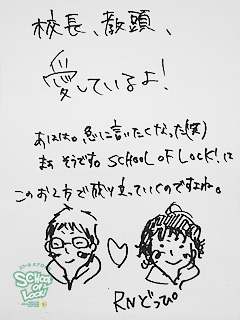 校長、教頭、
愛しているよ!
あはは。急に言いたくなった(笑)
まぁ そうですね SCHOOL OF LOCK! は
このお2方で成り立っていくのですよね。
RN どっぴ
SCHOOL
OF
LOCK!